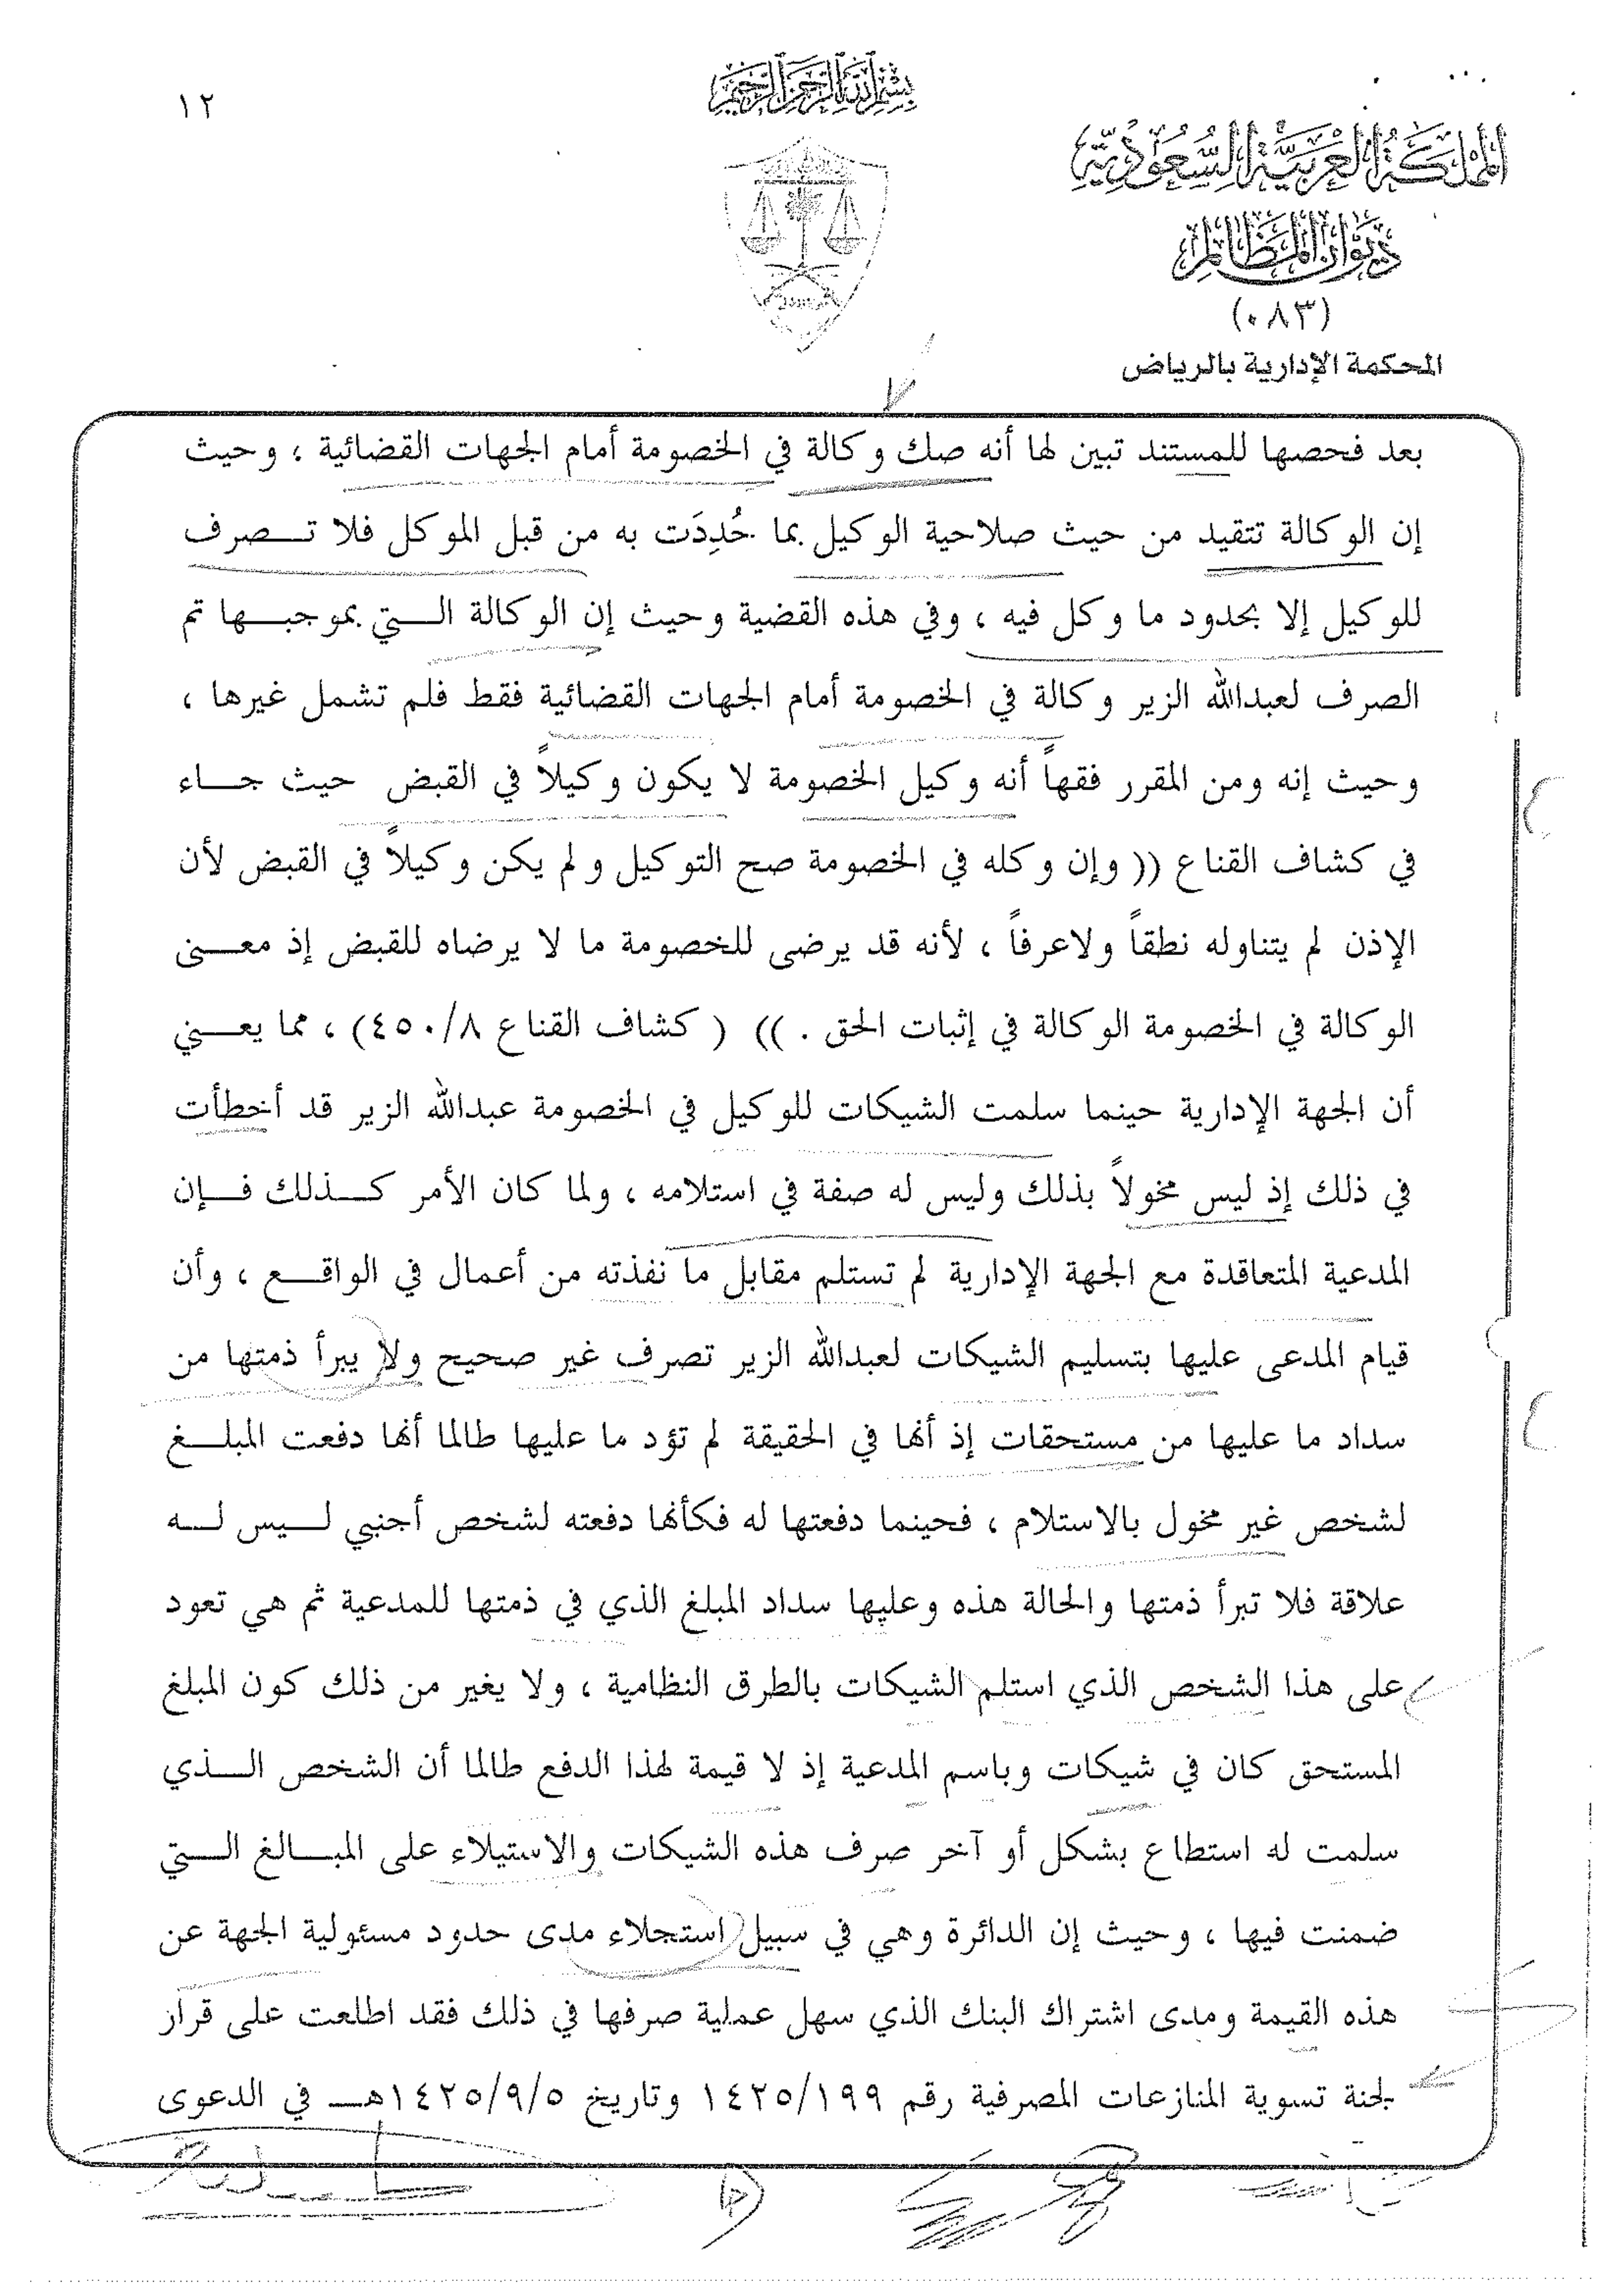 ١٢
بسم الله الرحمن الرحيم
المملكة العربية السعودية
ديوان المظالم
(٠٨٣)
المحكمة الإدارية بالرياض
بعد فحصها للمستند تبين لها أنه صك وكالة في الخصومة أمام الجهات القضائية ، وحيث
إن الوكالة تتقيد من حيث صلاحية الوكيل بما حُدِدَت به من قبل الموكل فلا تــصرف
للوكيل إلا بحدود ما وكل فيه ، وفي هذه القضية وحيث إن الوكالة الــتي بموجبــها تم
الصرف لعبدالله الزير وكالة في الخصومة أمام الجهات القضائية فقط فلم تشمل غيرها ،
وحيث إنه ومن المقرر فقهاً أنه وكيل الخصومة لا يكون وكيلاً في القبض حيث جــاء
في كشاف القناع (( وإن وكله في الخصومة صح التوكيل ولم يكن وكيلاً في القبض لأن
الإذن لم يتناوله نطقاً ولاعرفاً ، لأنه قد يرضى للخصومة ما لا يرضاه للقبض إذ معــنى
الوكالة في الخصومة الوكالة في إثبات الحق . )) ( كشاف القناع ٤٥٠/٨) ، مما يعــني
أن الجهة الإدارية حينما سلمت الشيكات للوكيل في الخصومة عبدالله الزير قد أخطأت
في ذلك إذ ليس مخولاً بذلك وليس له صفة في استلامه ، ولما كان الأمر كــذلك فــإن
المدعية المتعاقدة مع الجهة الإدارية لم تستلم مقابل ما نفذته من أعمال في الواقــع ، وأن
قيام المدعى عليها بتسليم الشيكات لعبدالله الزير تصرف غير صحيح ولا يبرأ ذمتها من
سداد ما عليها من مستحقات إذ أنها في الحقيقة لم تؤد ما عليها طالما أنها دفعت المبلــغ
لشخص غير مخول بالاستلام ، فحينما دفعتها له فكأنها دفعته لشخص أجنبي لــيس لــه
علاقة فلا تبرأ ذمتها والحالة هذه وعليها سداد المبلغ الذي في ذمتها للمدعية ثم هي تعود
على هذا الشخص الذي استلم الشيكات بالطرق النظامية ، ولا يغير من ذلك كون المبلغ
المستحق كان في شيكات وباسم المدعية إذ لا قيمة لهذا الدفع طالما أن الشخص الــذي
سلمت له استطاع بشكل أو آخر صرف هذه الشيكات والاستيلاء على المبــالغ الــتي
ضمنت فيها ، وحيث إن الدائرة وهي في سبيل استجلاء مدى حدود مسئولية الجهة عن
هذه القيمة ومدى اشتراك البنك الذي سهل عملية صرفها في ذلك فقد اطلعت على قرار
لجنة تسوية المنازعات المصرفية رقم ١٤٢٥/١٩٩ وتاريخ ١٤٢٥/٩/٥هــ في الدعوى